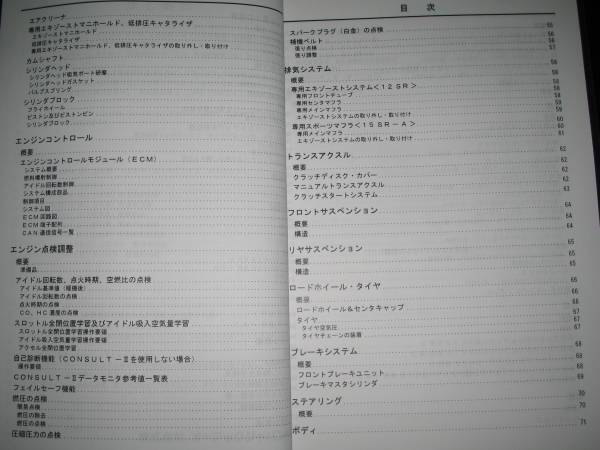 エアクリーナ
専用エキゾーストマニホールド、低排圧キャタライザ
エキゾーストマニホールド
低排圧キャタライザ
専用エキゾーストマニホールド、低排圧キャタライザの取り外し・取り付け
カムシャフト
シリンダヘッド
シリンダヘッド吸気ポート研摩
シリンダヘッドガスケット
バルブスプリング
シリンダブロック
フライホイール
ピストン及びピストンピン
シリンダブロック
エンジンコントロール
概要
エンジンコントロールモジュール(ECM)
システム概要
燃料噴射制御
アイドル回転数制御
システム構成部品
制御項目
システム図
ECM回路図
ECM端子配列
CAN通信信号一覧
エンジン点検調整
概要
準備品
アイドル回転数、点火時期、空燃比の点検
アイドル基準値(暖機後)
アイドル回転数の点検
点火時期の点検
CO、HC濃度の点検
スロットル全閉位置学習及びアイドル吸入空気量学習
スロットル全閉位置学習操作要領
アイドル吸入空気量学習操作要領
アクセル全閉位置学習
自己診断機能(CONSULT-Ⅱを使用しない場合)
操作要領
CONSULT-Ⅱデータモニタ参考値一覧表
フェイルセーフ機能
燃圧の点検
燃圧の除去
燃圧の点検
圧縮圧力の点検
目 次
スパークプラグ(白金)の点検 55
補機ベルト 56
張り点検 56
張り調整 57
排気システム 58
概要 58
専用エキゾーストシステム<12SR> 58
専用フロントチューブ 58
専用センタマフラ 58
専用メインマフラ 59
エキゾーストシステムの取り外し・取り付け 59
専用スポーツマフラ<15SR-A> 60
専用メインマフラ 60
エキゾーストシステムの取り外し・取り付け 61
トランスアクスル 62
概要 62
クラッチディスク・カバー 62
マニュアルトランスアクスル 62
クラッチスタートシステム 63
フロントサスペンション 64
概要 64
構造 64
リヤサスペンション 65
概要 65
構造 65
ロードホイール・タイヤ 66
概要 66
ロードホイール&センタキャップ 67
タイヤ 67
タイヤ空気圧 67
タイヤチェーンの装着 67
ブレーキシステム 68
概要 68
フロントブレーキユニット 68
ブレーキマスタシリンダ 69
ステアリング 70
概要 70
ボディ 71